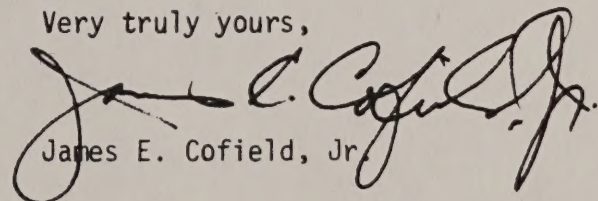 Very truly yours,
James E. Cofield, Jr.
James E. Cofield, Jr.